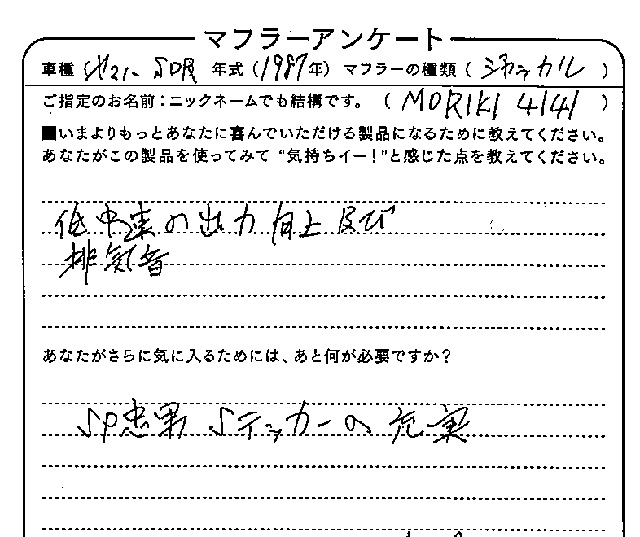 マフラーアンケート
車種 SDR 年式(1987年) マフラーの種類(ジャッカル)
ご指定のお名前:ニックネームでも結構です。(MORIKI 4141)
■いまよりもっとあなたに喜んでいただける製品になるために教えてください。
あなたがこの製品を使ってみて"気持ちイー!"と感じた点を教えてください。
低中速の出力向上及び
排気音
あなたがさらに気に入るためには、あと何が必要ですか?
SP忠男 ステッカーの充実